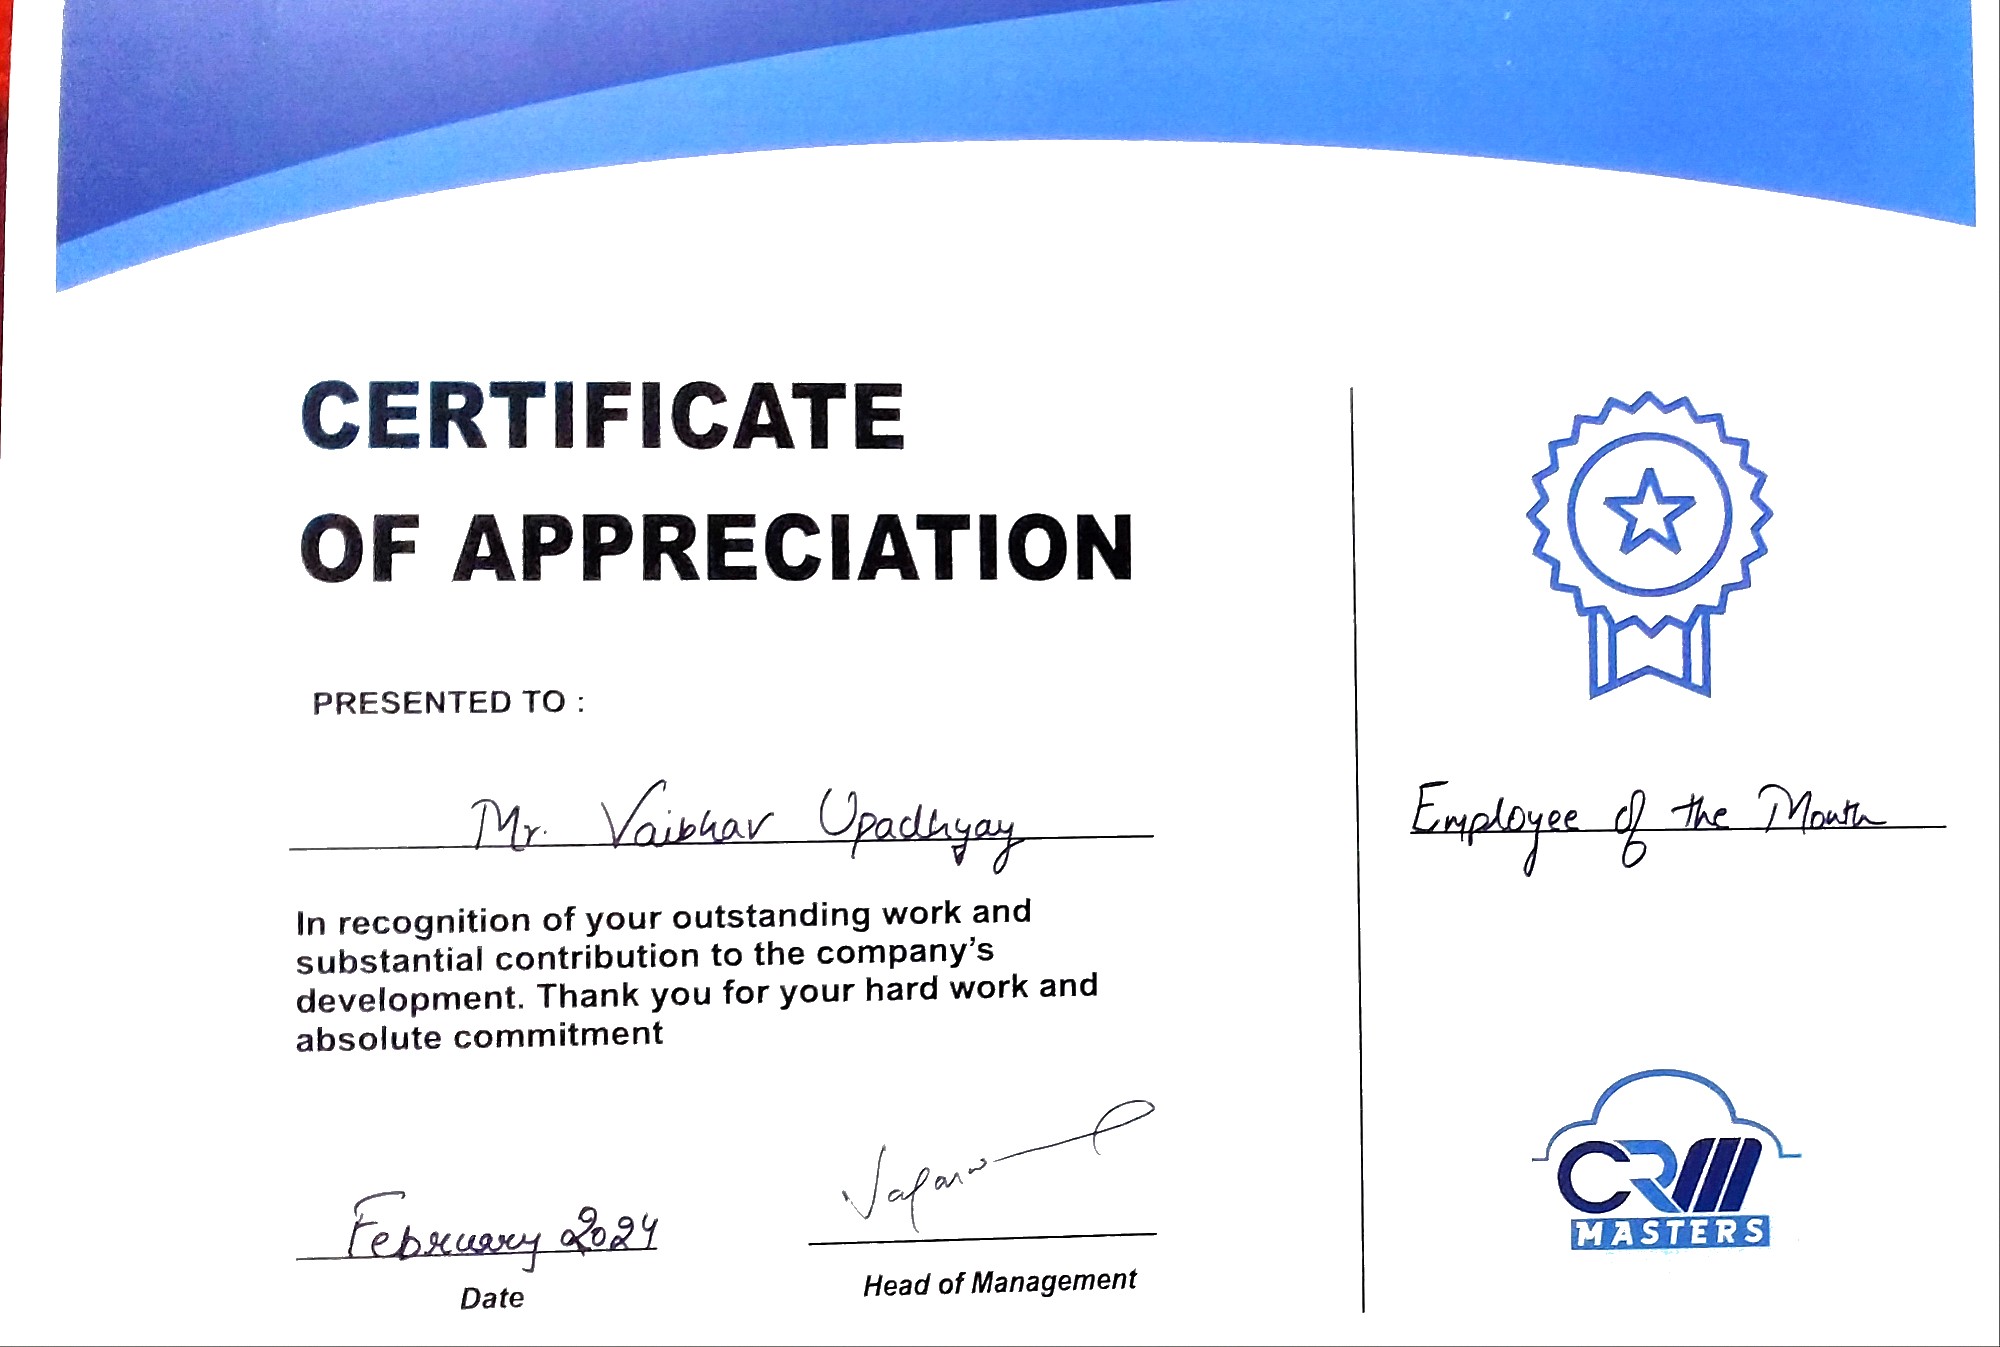 CERTIFICATE
OF APPRECIATION
PRESENTED TO :
Mr. Vaibhav Upadhyay
In recognition of your outstanding work and
substantial contribution to the company's
development. Thank you for your hard work and
absolute commitment
February 2024
Date
Head of Management
Employee of the Month
CRM
MASTERS